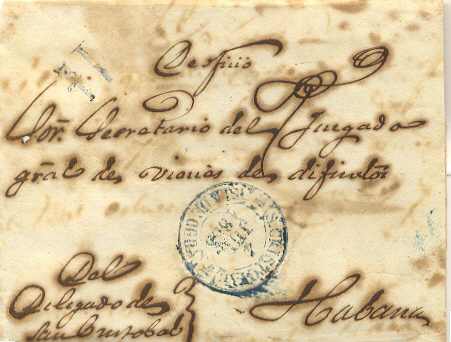 De oficio
Sor. Secretario del Juzgado
gral de vienes de difuntos
Del
Delegado de
San Cristobal
Habana